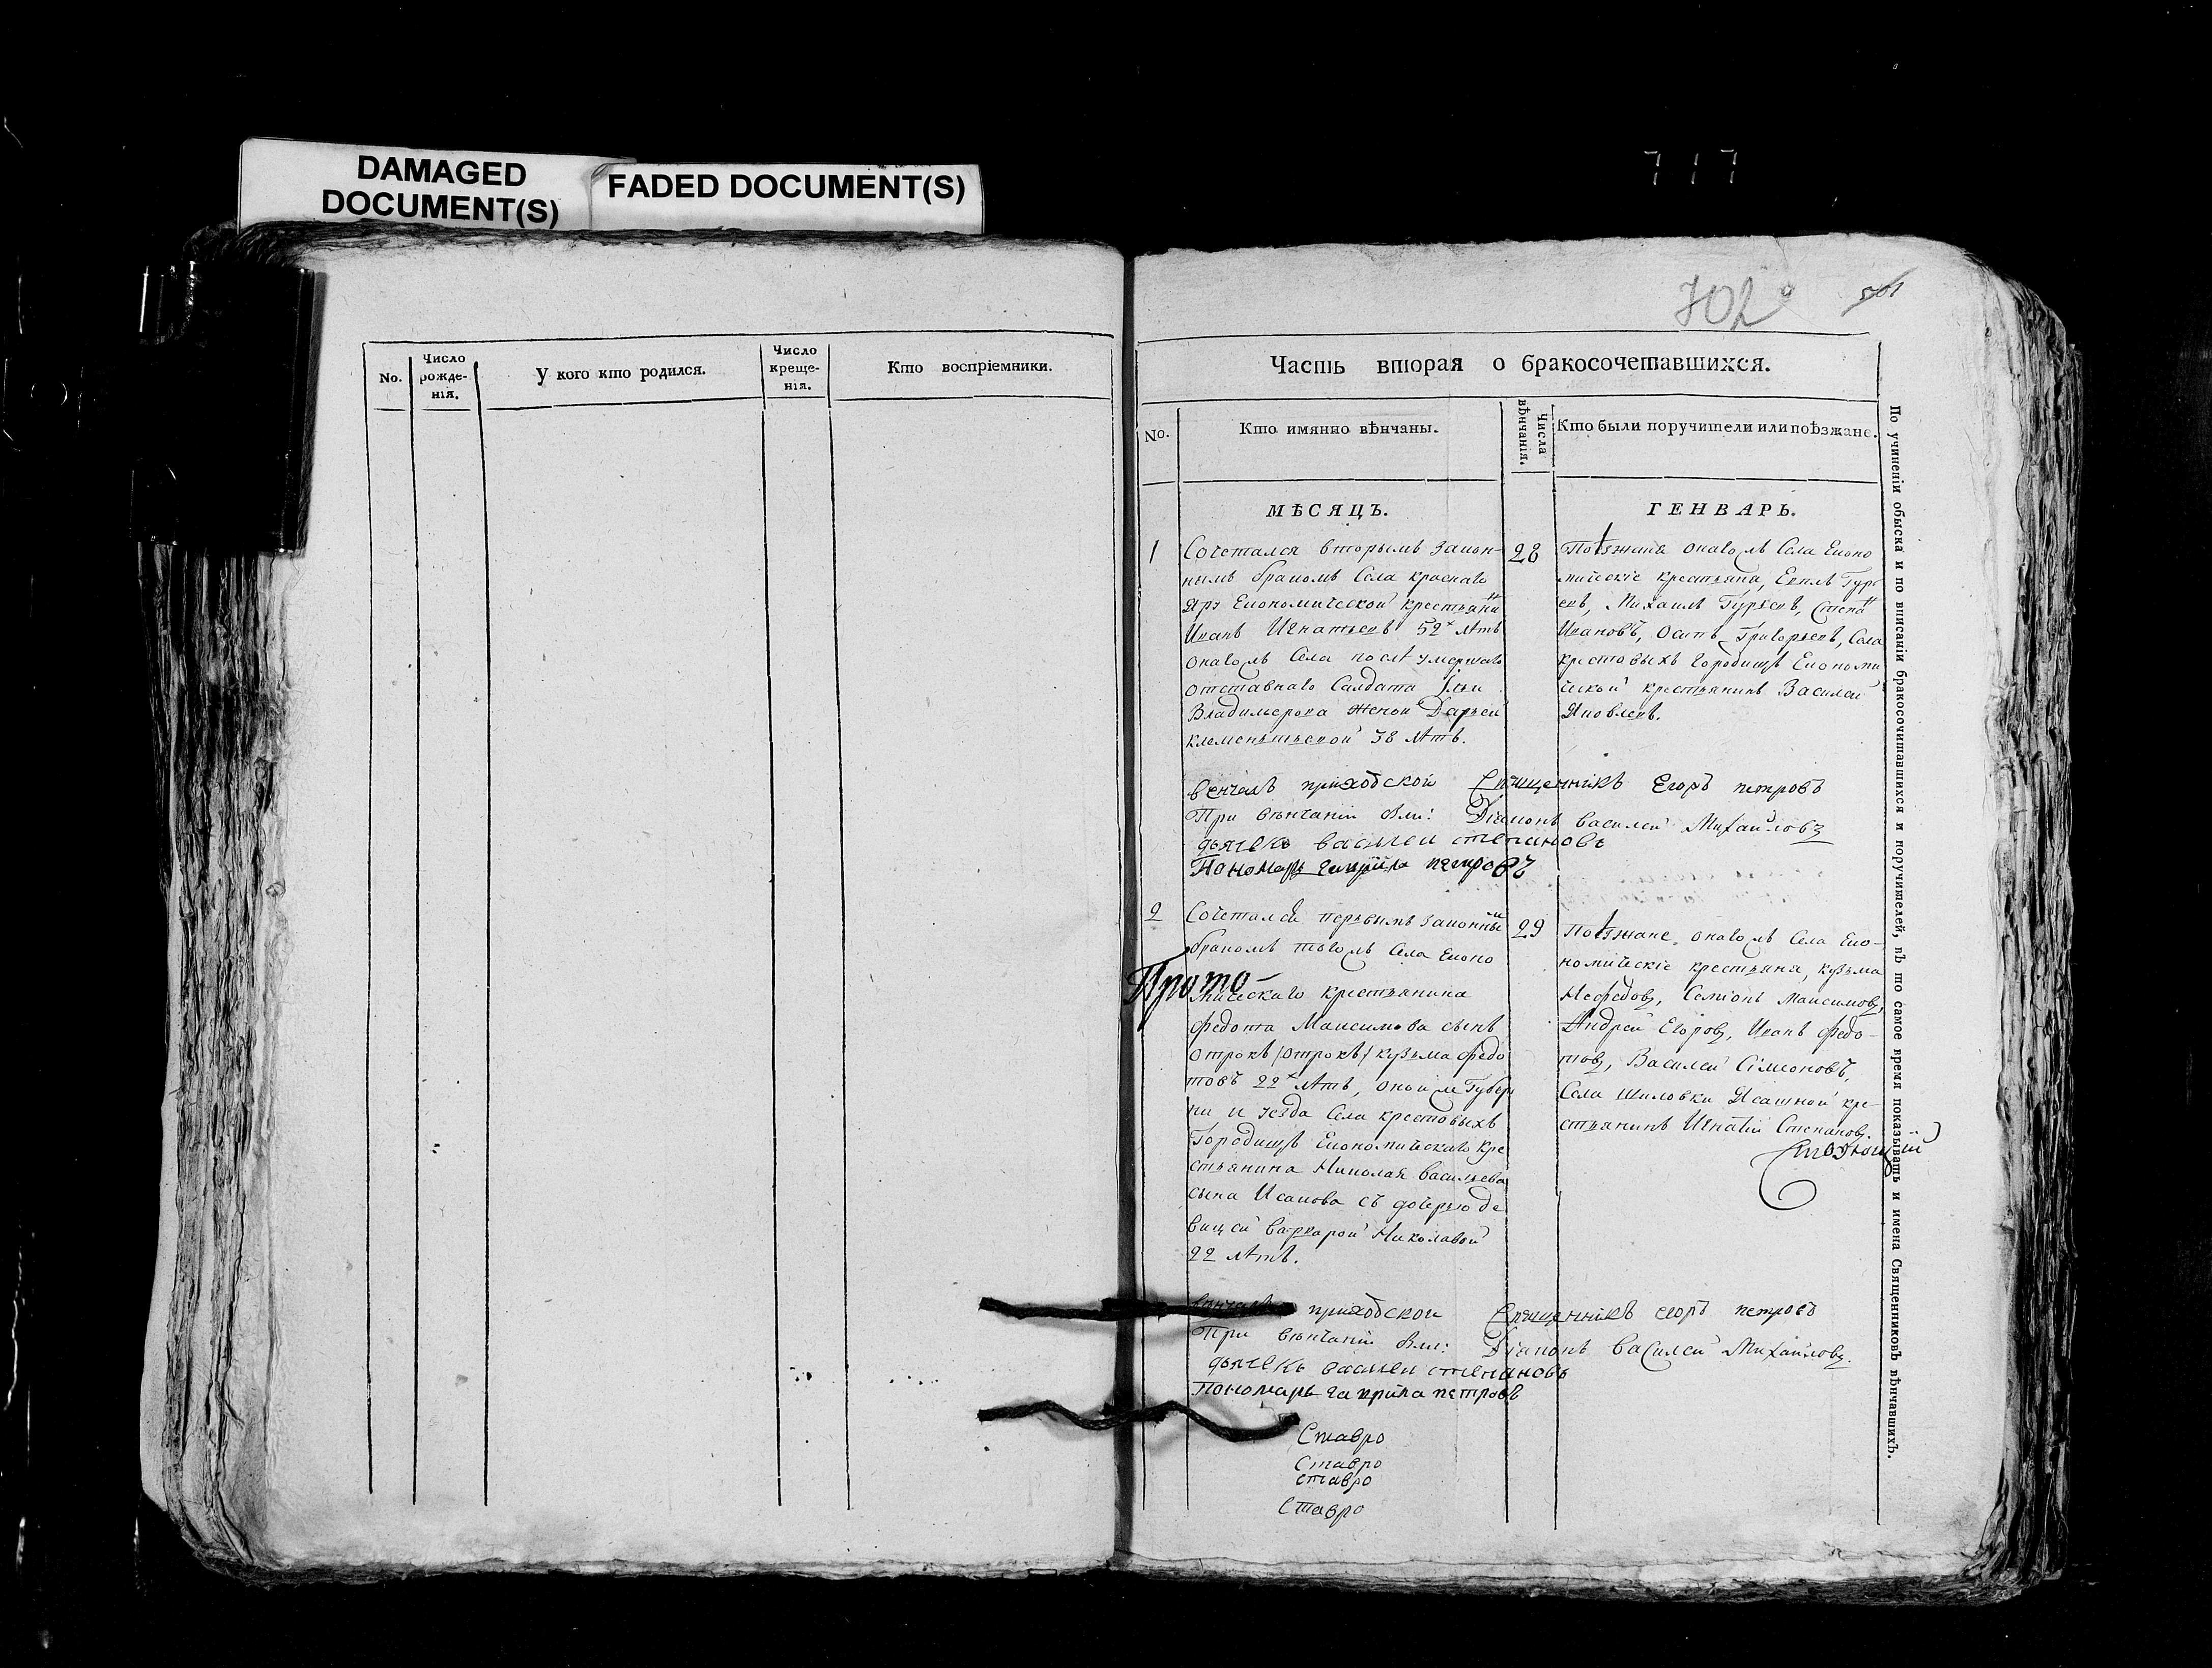 DAMAGED
DOCUMENT(S)
FADED DOCUMENT(S)
717
702
561
No.
Число
рожде-
нія.
У кого кто родился.
Число
креще-
нія.
Кто воспріемники.
Часть вторая о бракосочетавшихся.
No.
Кто имянно вѣнчаны.
Числа
вѣнчанія.
Кто были поручители или поѣзжане.
МѢСЯЦЪ.
ГЕНВАРЬ.
1
Сочетался вторымъ закон-
нымъ бракомъ Села краснаго
яру Економической крестьянинъ
Иванъ Игнатьевъ 52х лѣтъ
онагожъ Села послѣ умершаго
отставнаго Салдата
Владимерова женой Дарьей
клементьевой 38 лѣтъ.
28
Поѣзжане онагожъ Села Еконо
мическіе крестьяна, Гурь
евъ, Михаилъ Гурьевъ, Степанъ
Ивановъ, Осипъ Григорьевъ, Села
крестовыхъ городищъ Економи
ческой крестьянинъ Василей
Яковлевъ.
венчалъ приходской Священникъ Егоръ петровъ
При венчаніи были: Діаконъ Василей Михайловъ
дьячекъ василеи степановъ
Пономарь гаврила петровъ
2
Сочетался первымъ законнымъ
бракомъ тогожъ Села Еконо
Прото-
мическаго крестьянина
федота Максимова сынъ
отрокъ /отрокъ/ кузьма федо
товъ 22х лѣтъ, оной же Губер
ни и уезда Села крестовыхъ
Городищъ Економическаго кре
стьянина Николая Васильева
сына Исакова съ дочерью де
вицей варварой Николавой
22 лѣтъ.
29
Поѣзжане онагожъ Села Еко-
номическіе крестьяна, кузьма
Нефедовъ, Семіонъ Максимовъ,
Андрей Егоровъ, Иванъ федо-
товъ, Василей Сімеоновъ,
Села шиловки Ясашной кре-
стьянинъ Игнатій Степановъ.
приходской Священникъ егоръ петровъ
При венчаніи были: Діаконъ Василей Михайловъ.
дьячекъ василеи степановъ
Пономарь гаврила петровъ
Ставро
Ставро
ставро
Ставро
По учиненіи обыска и по вписаніи бракосочитавшихся и поручителей, въ то самое время показывать и имена Священниковъ вѣнчавшихъ.